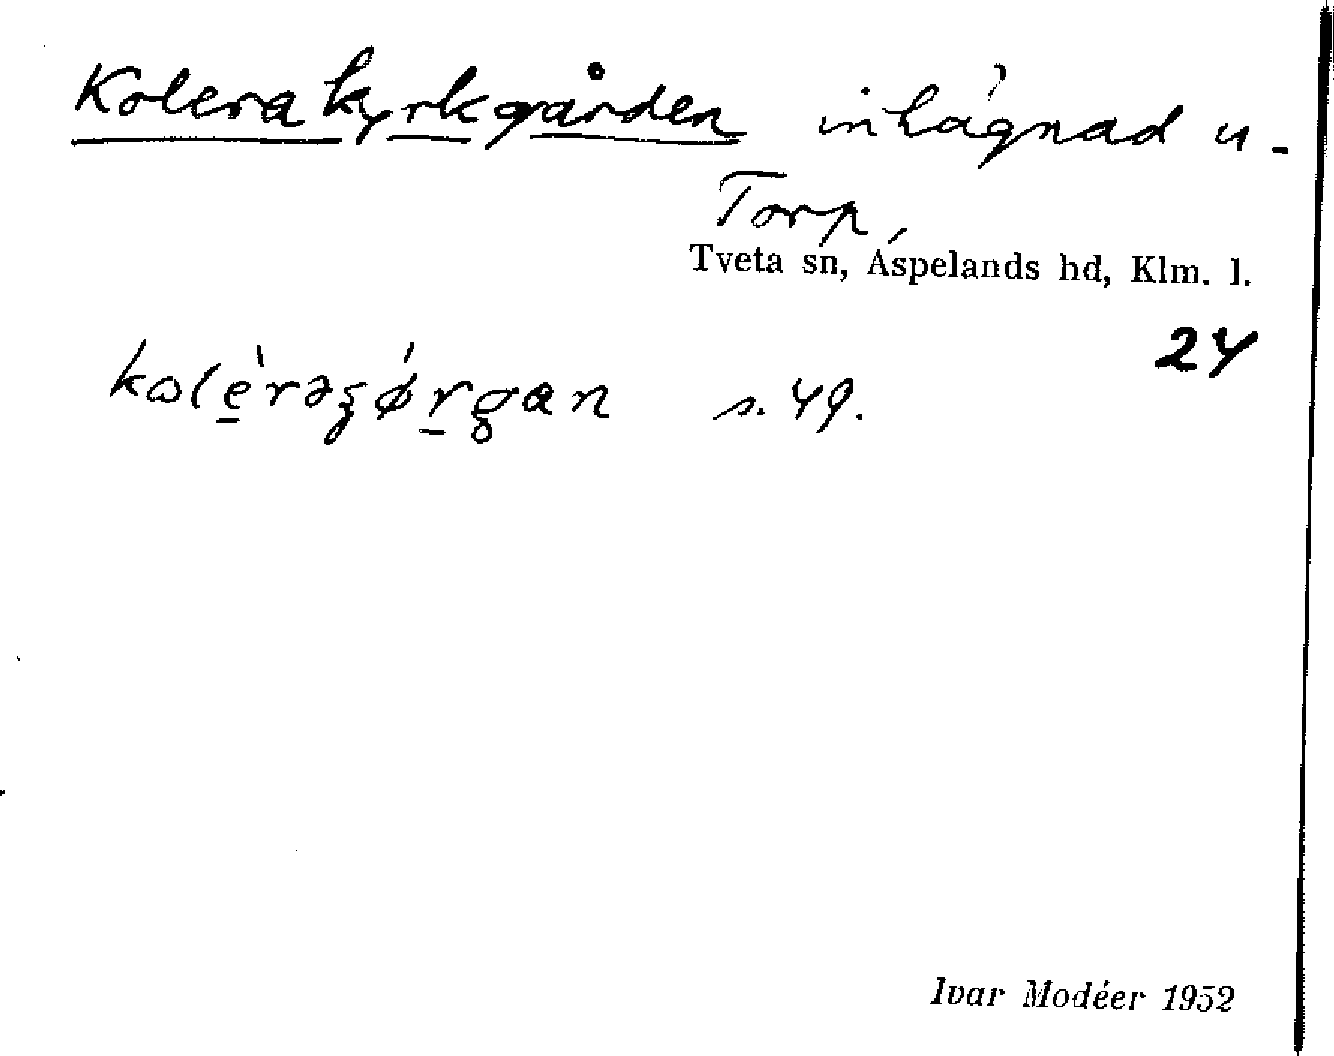 Kolerakyrkgården inhägnad u-
Torp,
Tveta sn, Áspelands hd, Klm. l.
24
s. 49.
Ivar Modéer 1952